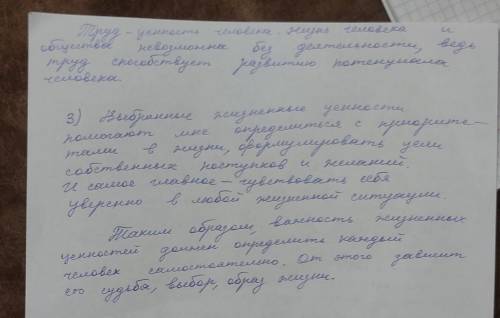 Труд - ценность человека. Жизнь человека и
общества невозможны без деятельности, ведь
труд способствует развитию потенциала
человека.
3) Выбранные жизненные ценности
помогают мне определиться с приорите-
тами в жизни, сформулировать цели
собственных поступков и желаний.
И самое главное - чувствовать себя
уверенно в любой жизненной ситуации.
Таким образом, важность жизненных
ценностей должен определить каждый
человек самостоятельно. От этого зависит
его судьба, выбор, образ жизни.